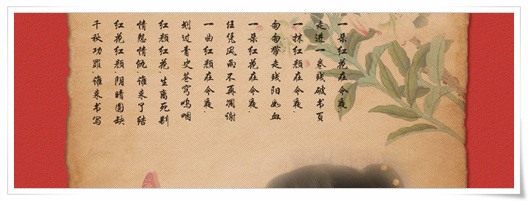 一朵红花在今夜.
走进一卷残破书页
一抹红颜在今夜.
匆匆带走残阳如血
一朵红花在今夜.
任凭风雨不再凋谢
一曲红颜在今夜.
划过青史苍穹呜咽
红颜红花.生离死别
情怨情仇.谁来了结
红花红颜.阴晴圆缺
千秋功罪.谁来书写